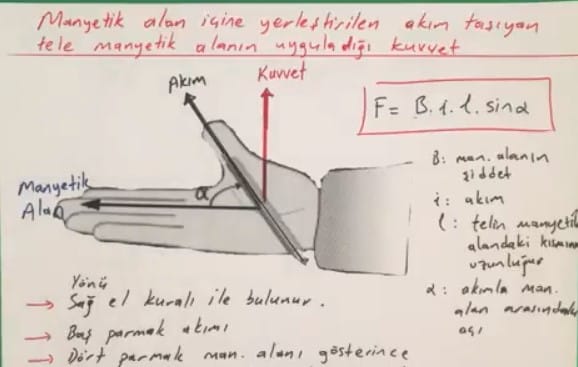 Manyetik alan içine yerleştirilen akım taşıyan
tele manyetik alanın uyguladığı kuvvet
Akım
Kuvvet
F= B.i.l.sinα
Manyetik
Alan
α
B: man. alanın
şiddet
i: akım
l: telin manyetik
alandaki kısmın
uzunluğu
α: akımla man.
alan arasındaki
açı
Yönü
→ Sağ el kuralı ile bulunur.
→ Baş parmak akımı
→ Dört parmak man. alanı gösterince